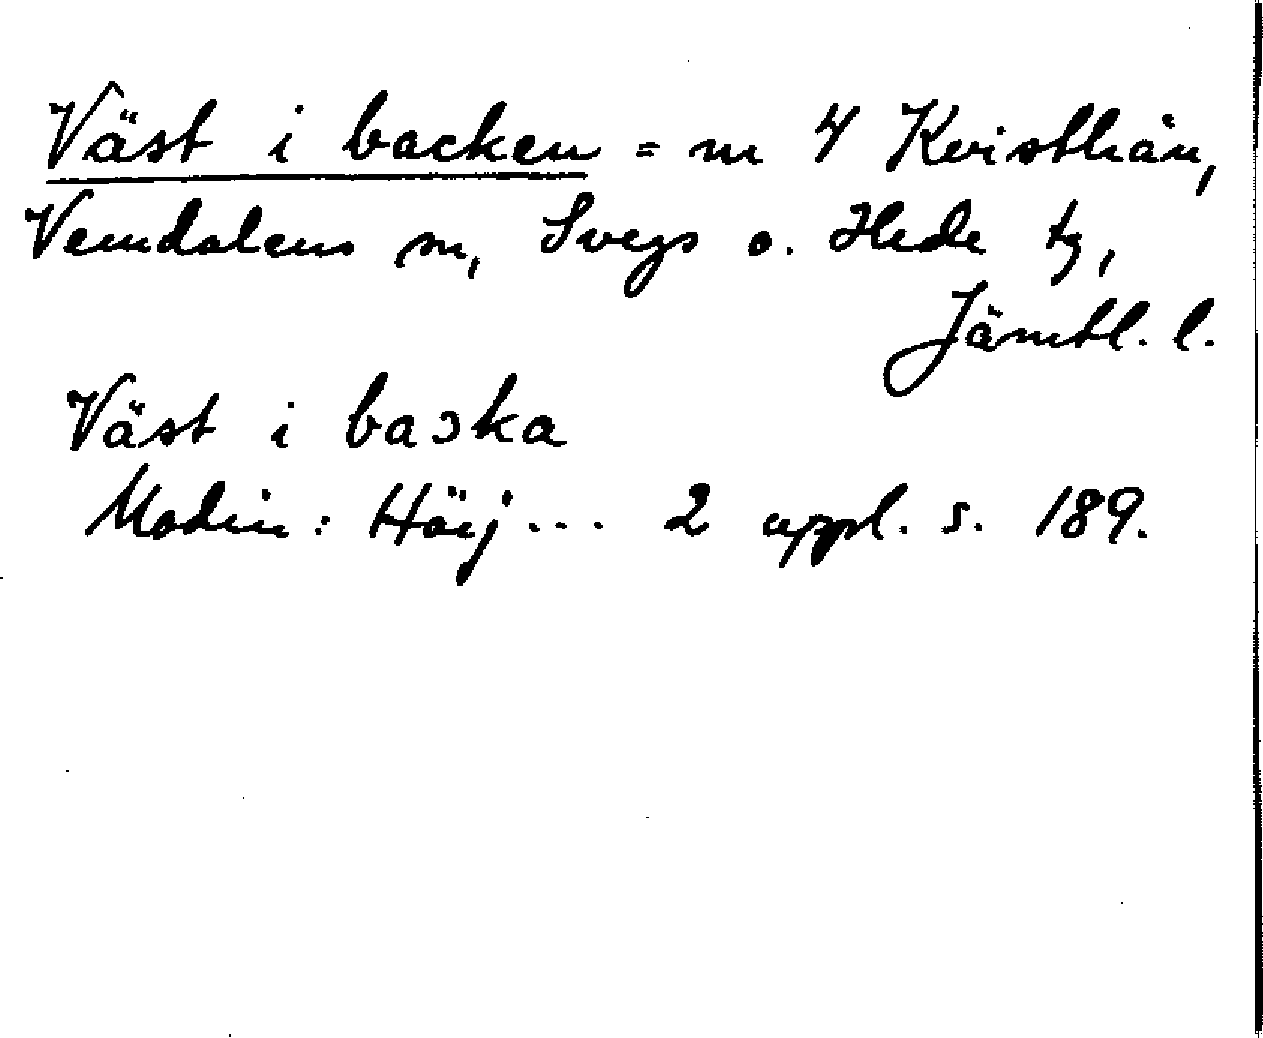 Väst i backen = nr 4 Kvisthån,
Vemdalens sn, Svegs o. Hede tg,
Jämtl. l.
Väst i baɔka
Modin: Härj... 2 uppl. s. 189.